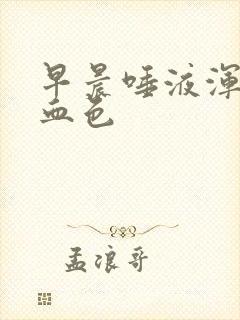 早晨唾液浑
血色
孟浪哥